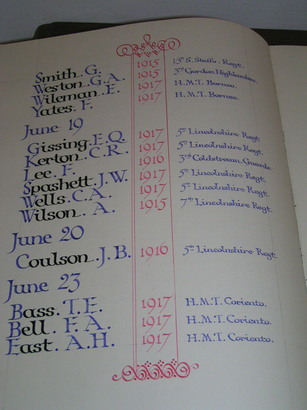 Smith. G. 1915 1st S. Staffs. Regt.
Weston. G.A. 1915 3rd Gordon Highlanders.
Wileman. E. 1917 H.M.T. Borneo.
Yates. F. 1917 H.M.T. Borneo.
June 19
Gissing. F.Q. 1917 5th Lincolnshire Regt.
Kerton. C.R. 1917 5th Lincolnshire Regt.
Lee. F. 1916 3rd Coldstream Guards.
Spashett. J.W. 1917 5th Lincolnshire Regt.
Wells. C.A. 1917 5th Lincolnshire Regt.
Wilson. A. 1915 7th Lincolnshire Regt.
June 20
Coulson. J.B. 1916 5th Lincolnshire Regt.
June 23
Bass. T.E. 1917 H.M.T. Coriento.
Bell. F.A. 1917 H.M.T. Coriento.
East. A.H. 1917 H.M.T. Coriento.